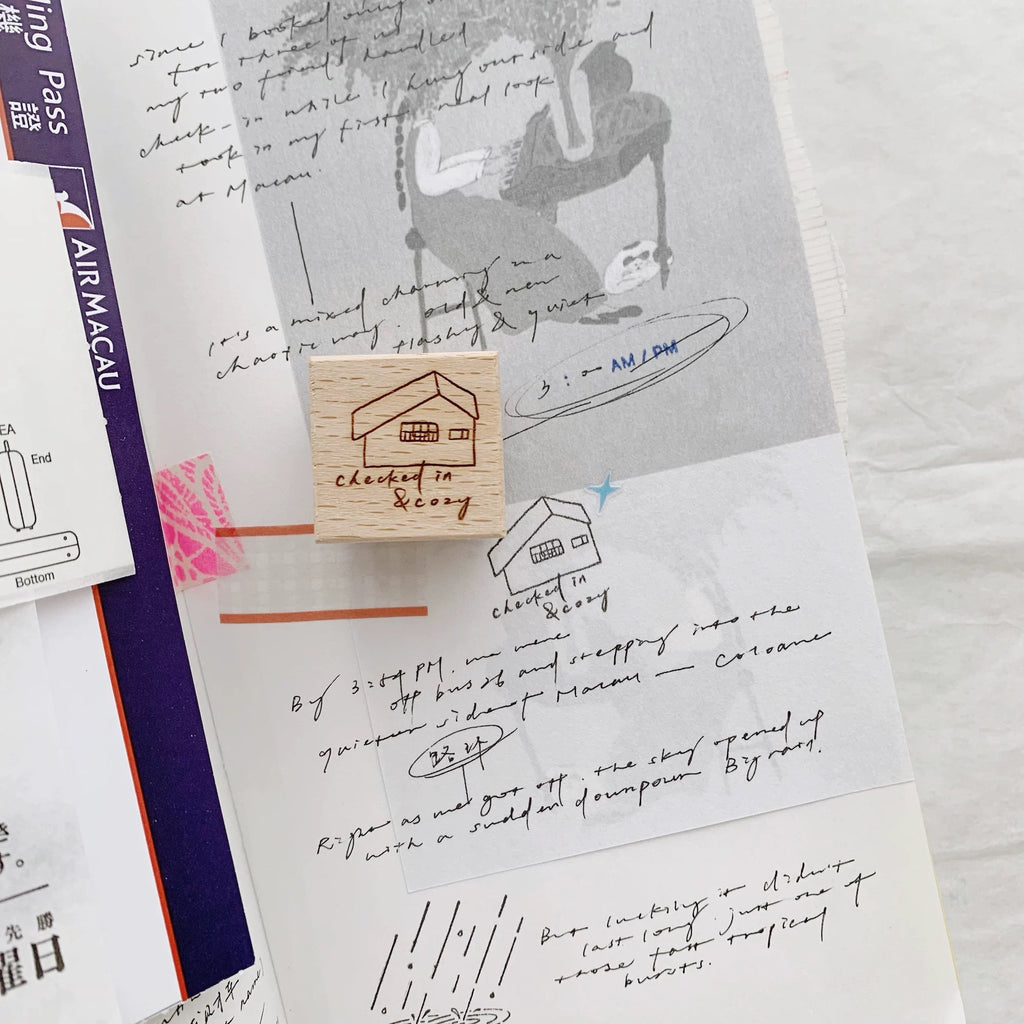 ding Pass
機 證
AIR MACAU
since I booked
for three of us
my two friends handled
check-in while I hung outside and
took in my first real look
at Macau.
It's a mixed charming in a
chaotic way. old & new
flashy & quiet
3:00 AM/PM
EA
End
Bottom
checked in
& cozy
checked in
& cozy
By 3:54 PM. we were
off bus 26 and stepping into the
quieter side of Macau — Coloane
路环
Right as we got off. the sky opened up
with a sudden downpour Big rain.
But luckily it didn't
last long. just one of
those fast tropical
bursts.
き
す。
先勝
曜日
name